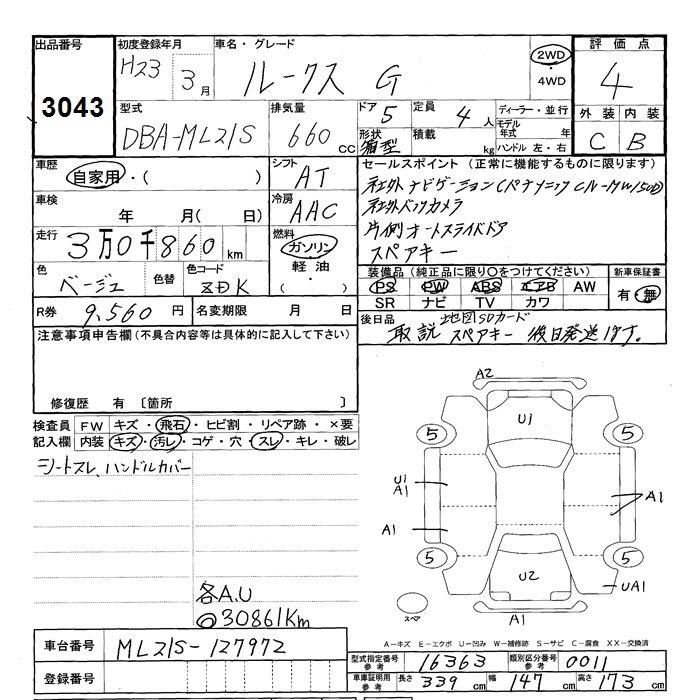 出品番号
3043
初度登録年月
H23 3月
車名・グレード
ルークス G
2WD
・
4WD
評価点
4
外装 内装
C B
型式
DBA-ML21S
排気量
660 cc
ドア 5
定員 4人
形状 箱型
積載 kg
ディーラー・並行
モデル年式 年
ハンドル 左・右
車歴
自家用・( )
シフト
AT
車検
年 月( 日)
冷房
AAC
走行
3万0千860km
燃料
ガソリン
・
軽油
・
( )
色
ベージュ
色替
色コード
ZDK
R券 9,560円
名変期限 月 日
セールスポイント(正常に機能するものに限ります)
社外ナビゲーション(パナソニックCN-MW150D)
社外バックカメラ
片側オートスライドドア
スペアキー
装備品(純正品に限り○をつけてください)
PS PW ABS エアB AW
SR ナビ TV カワ
新車保証書
有・無
後日品
取説 地図SDカード スペアキー 後日発送です。
注意事項申告欄(不具合内容等は具体的に記入して下さい)
修復歴 有〔箇所 〕
検査員記入欄
FW キズ・飛石・ヒビ割・リペア跡・×要
内装 キズ・汚レ・コゲ・穴・スレ・キレ・破レ
シートスレ、ハンドルカバー
各A.U
◎30861Km
A2
U1
5 5
U1
A1
A1
A1
5 5
U2
UA1
スペア
A1
A-キズ E-エクボ U-凹み W-補修跡 S-サビ C-腐食 XX-交換済
車台番号 ML21S-127972
登録番号
型式指定番号参考 16363
類別区分番号参考 0011
車庫証明用参考
長さ 339cm
幅 147cm
高さ 173cm